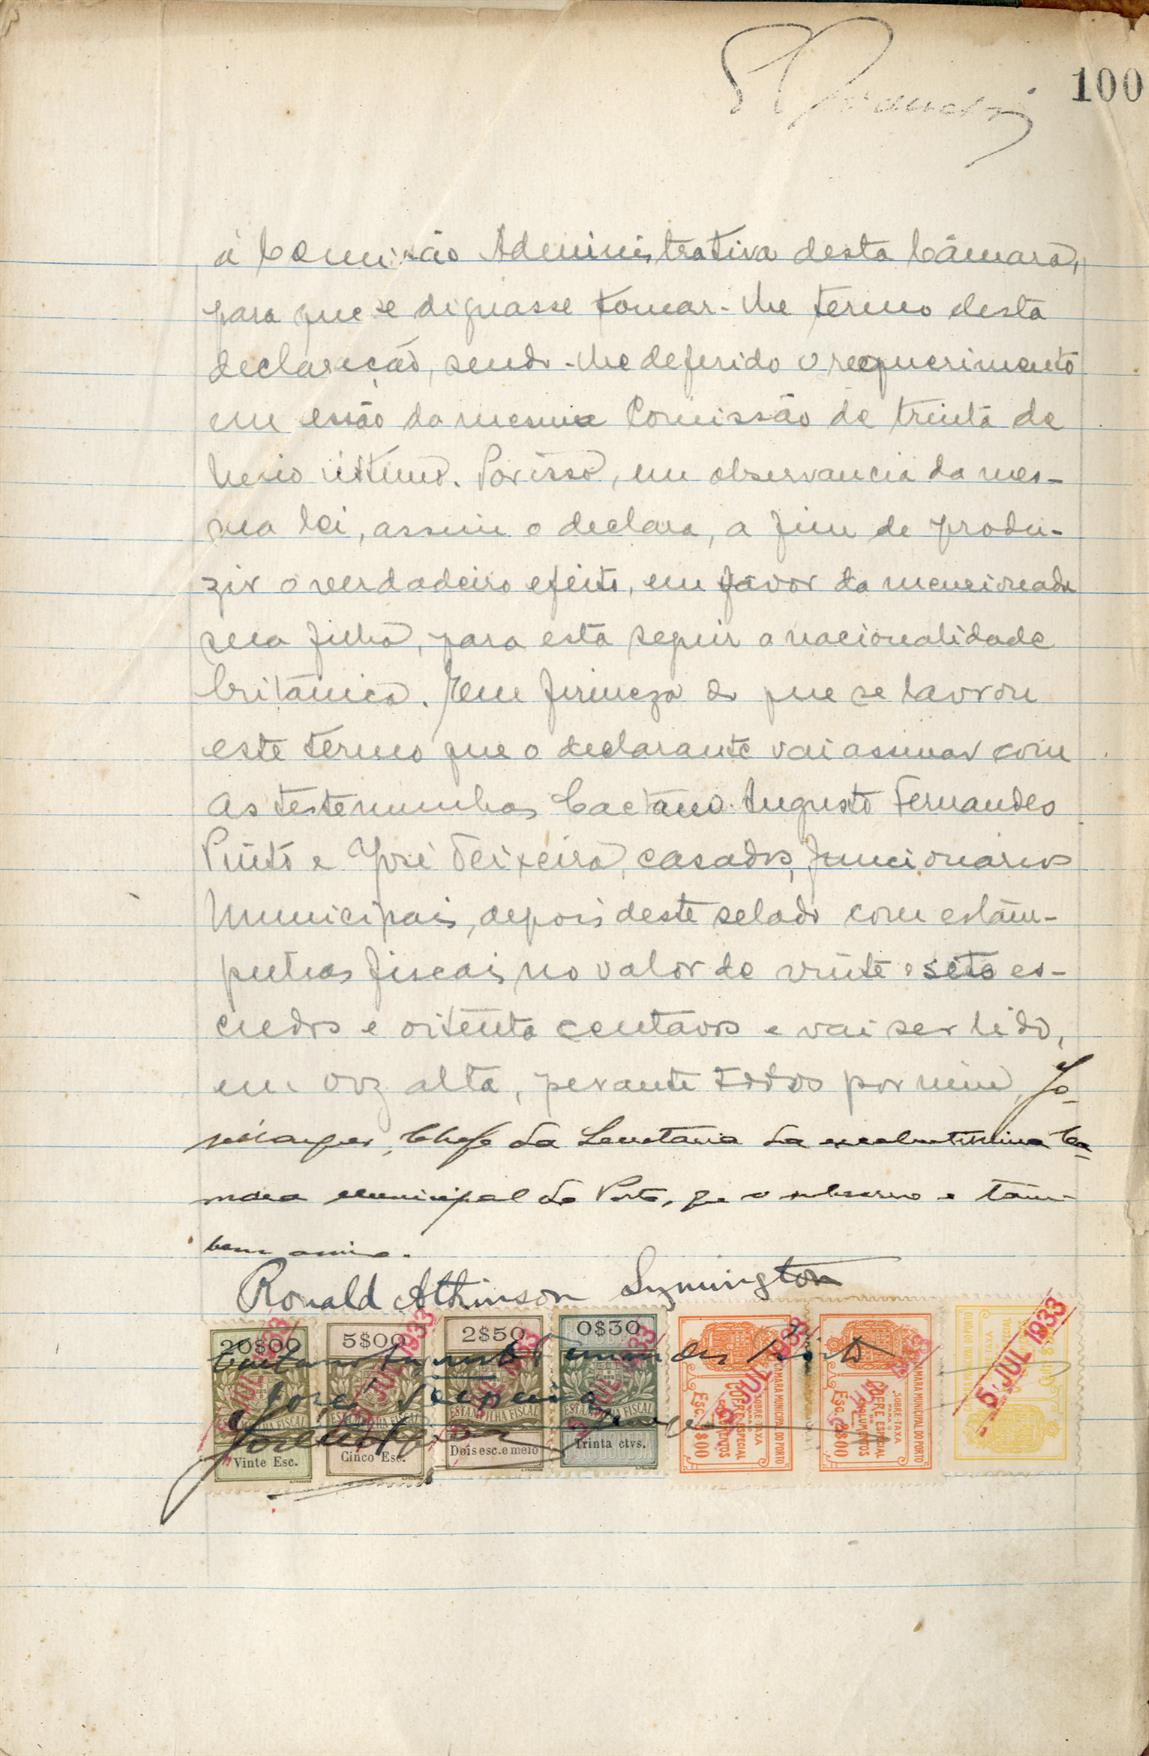 100
á Comissão Administrativa desta Câmara,
para que se dignasse tomar-lhe termo desta
declaração, sendo-lhe deferido o requerimento
em essão da mesma Comissão de trinta de
ultimo. Porisso, em observancia da mes-
ma lei, assim o declara, a fim de produ-
zir o verdadeiro efeito, em favor da mencionada
sua filha, para esta seguir a nacionalidade
britânica. Em firmeza do que se lavrou
este termo que o declarante vai assinar com
as testemunhas Caetano Augusto Fernandes
Pinto e José Teixeira, casados, funcionarios
Municipais, depois deste selado com estam-
pilhas fiscais no valor de vinte e sete es-
cudos e oitenta centavos e vai ser lido,
em voz alta, perante todos por mim, Jo-
Chefe da Secretaria da excelentissima Ca-
mara Municipal do Porto, que o subscrevo e tam-
bem assino.
Ronald Atkinson Lymington
20$00 5$00 2$50 0$30
Caetano Augusto Fernandes Pinto
José Teixeira
ESTAMPILHA FISCAL
Vinte Esc. Cinco Esc. Dois esc. e meio Trinta ctvs.
CAMARA MUNICIPAL DO PORTO
SOBRE-TAXA
PARA O
COFRE ESPECIAL
EMOLUMENTOS
5 JUL 1933